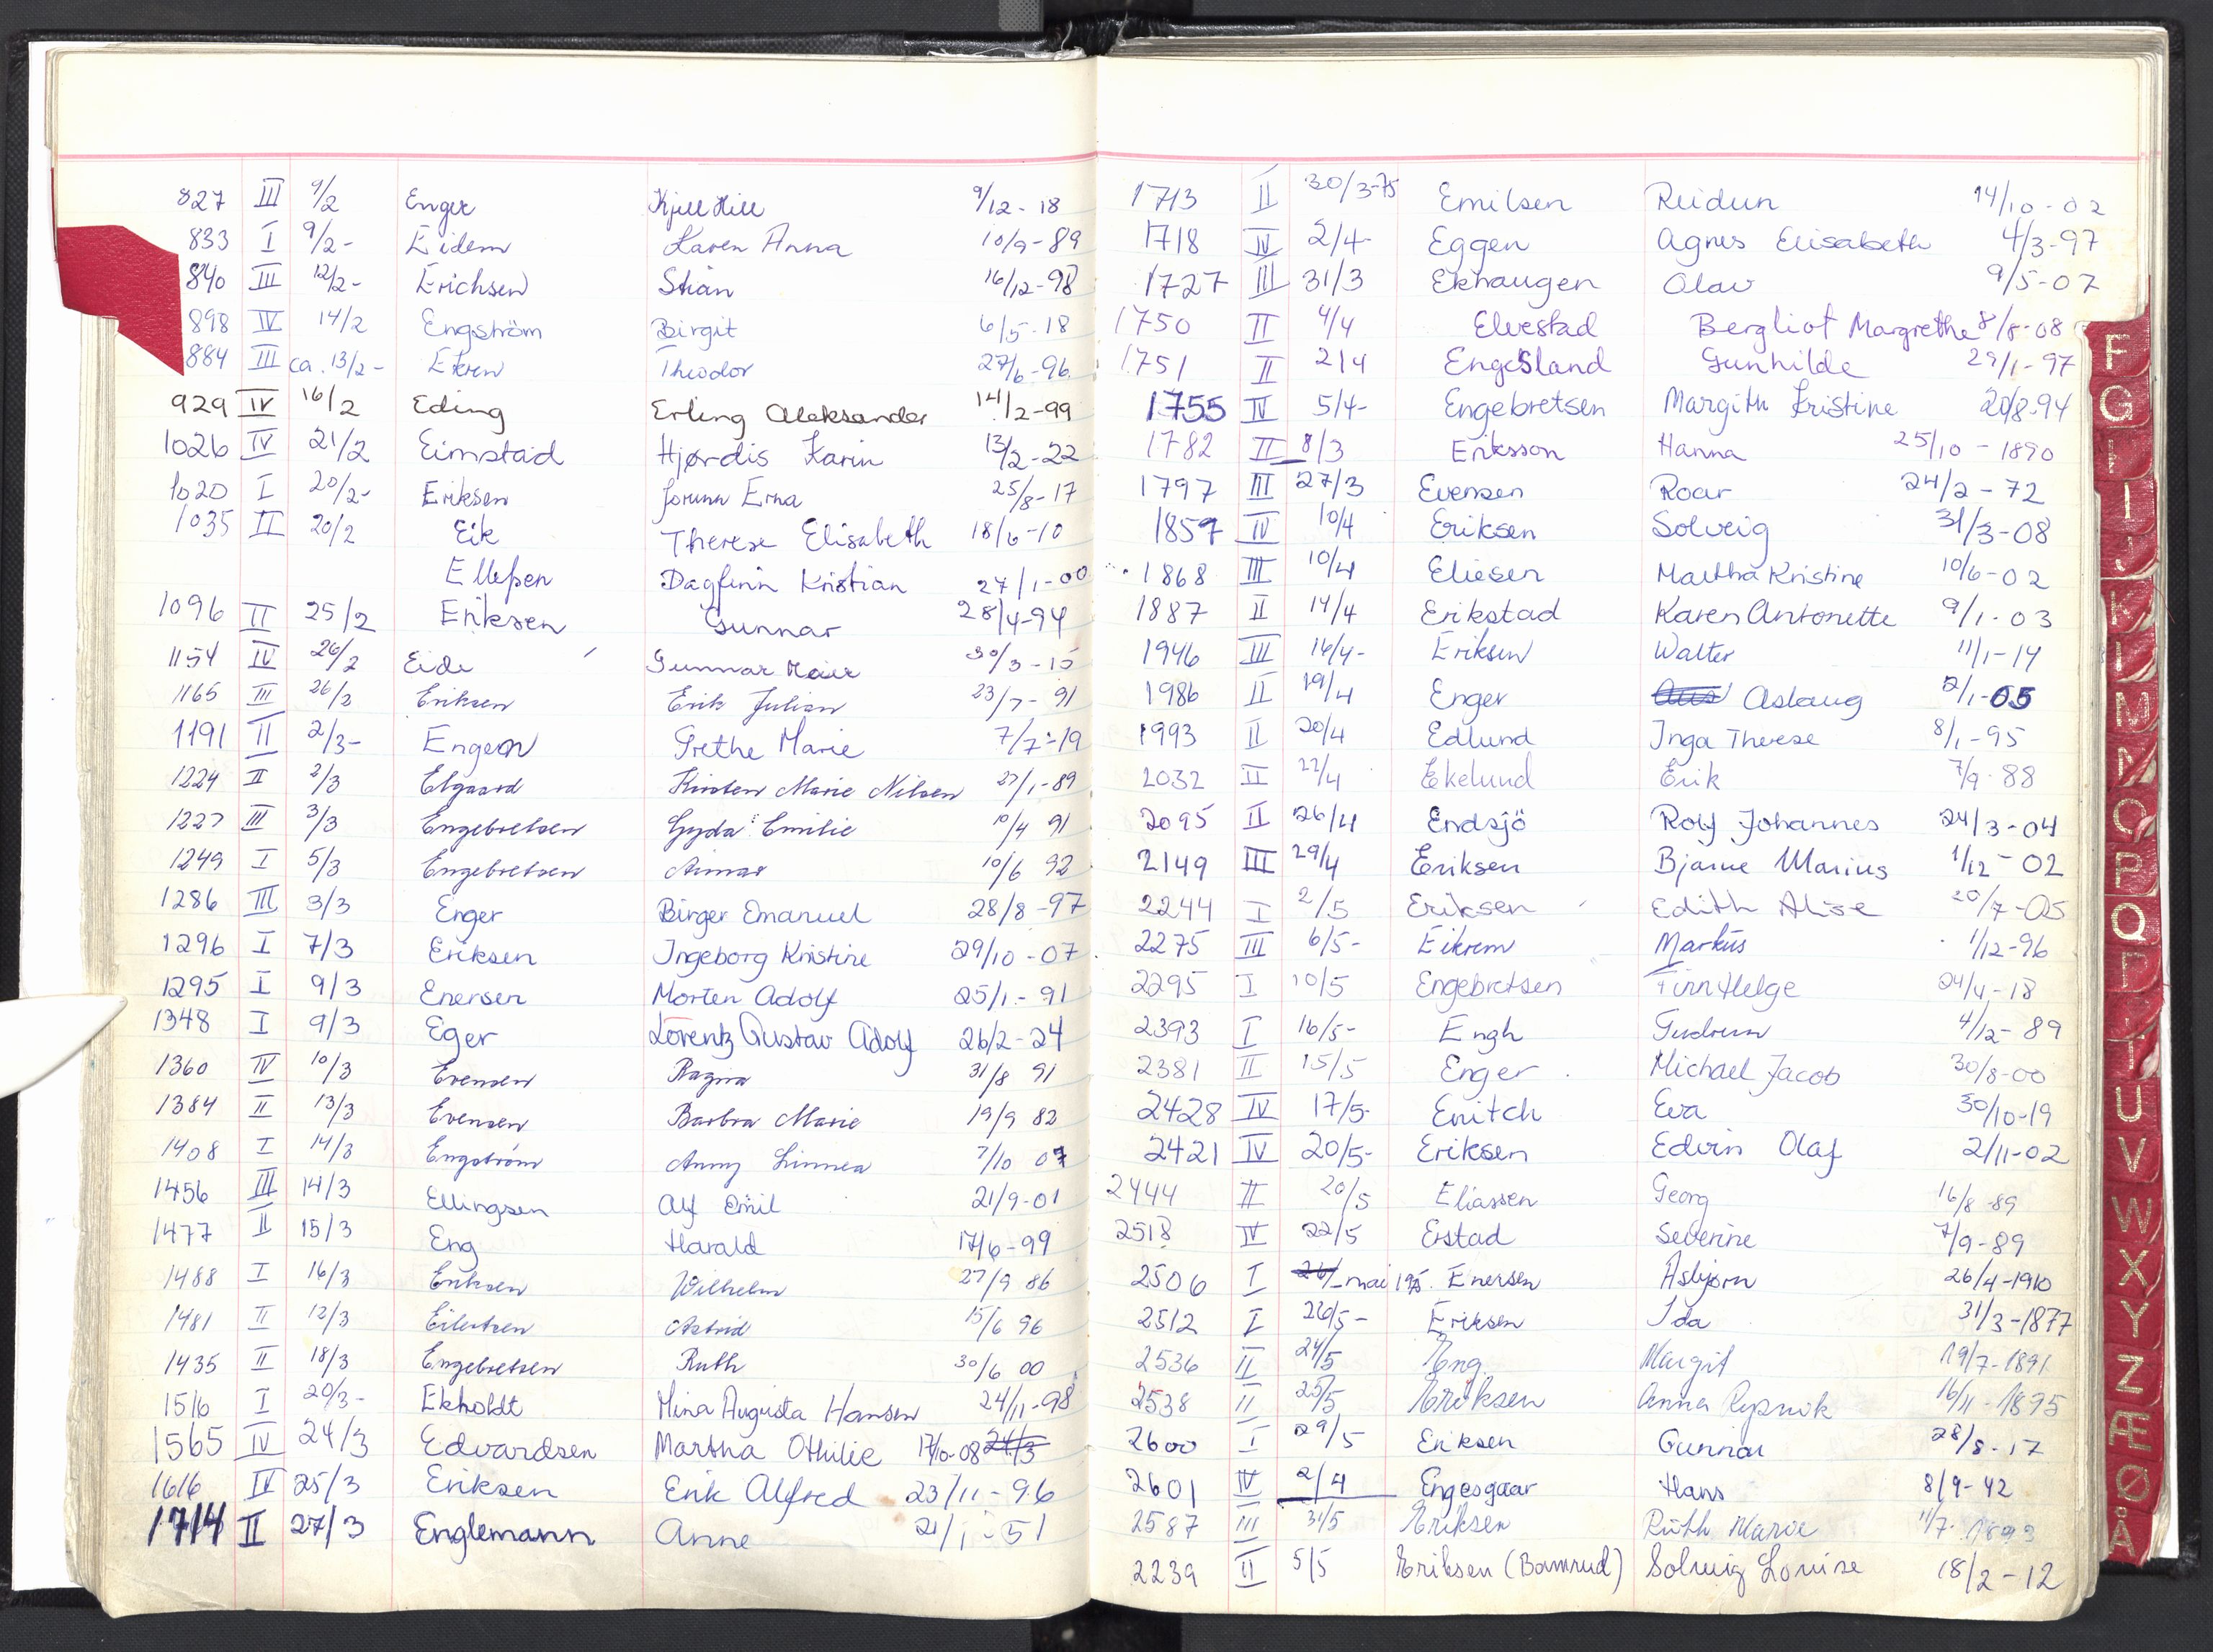 827 III 9/2 Enger Kjell Hill 9/12-18
833 I 9/2- Eidem Karen Anna 10/9-89
840 III 12/2- Erichsen Stian 16/12-98
898 IV 14/2 Engström Birgit 6/5-18
884 III ca. 13/2- Ekren Theodor 27/6-96
929 IV 16/2 Eding Erling Aleksander 14/2-99
1026 IV 21/2 Eimstad Hjørdis Karin 13/2-22
1020 I 20/2- Eriksen Jorunn Erna 25/8-17
1035 II 20/2 Eik Therese Elisabeth 18/6-10
Ellefsen Dagfinn Kristian 27/1-00
1096 II 25/2 Eriksen Gunnar 28/4-94
1154 IV 26/2 Eide Gunnar 30/3-15
1165 III 26/2 Eriksen Erik Julian 23/7-91
1191 II 2/3- Engen Grethe Marie 7/7-19
1224 II 2/3 Elgaard Kirsten Marie Nilsen 27/1-89
1227 III 3/3 Engebretsen Gyda Emilie 10/4 91
1249 I 5/3 Engebretsen 10/6 92
1286 III 3/3 Enger Birger Emanuel 28/8-97
1296 I 7/3 Eriksen Ingeborg Kristine 29/10-07
1295 I 9/3 Enersen Morten Adolf 25/1-91
1348 I 9/3 Eger Lorentz Gustav Adolf 26/2-24
1360 IV 10/3 Evensen Ragna 31/8 91
1384 II 13/3 Evensen Barbra Marie 19/9 82
1408 I 14/3 Engström Anny Linnea 7/10 07
1456 III 14/3 Ellingsen Alf Emil 21/9-01
1477 II 15/3 Eng Harald 17/6-99
1488 I 16/3 Eriksen Wilhelm 27/9 86
1481 II 12/3 Eilertsen Astrid 15/6 96
1435 II 18/3 Engebretsen Ruth 30/6 00
1516 I 20/3- Ekholdt Mina Augusta Hansen 24/11-98
1565 IV 24/3 Edvardsen Martha Othilie 17/10-08 24/3
1616 IV 25/3 Eriksen Erik Alfred 23/11-96
1714 II 27/3 Englemann Anne 21/1-51
1713 II 30/3-75 Emilsen Reidun 14/10-02
1718 IV 2/4- Eggen Agnes Elisabeth 4/3-97
1727 III 31/3 Ekhaugen Olav 9/5-07
1750 II 4/4 Elvestad Bergliot Margrethe 8/8-08
1751 II 2/4 Engesland Gunhilde 29/1-97
1755 IV 5/4- Engebretsen Margith Kristine 20/8-94
1782 II 8/3 Eriksson Hanna 25/10-1890
1797 III 27/3 Evensen Roar 24/2-72
1857 IV 10/4 Eriksen Solveig 31/3-08
1868 III 10/4 Eliesen Martha Kristine 10/6-02
1887 II 14/4 Erikstad Karen Antonette 9/1-03
1946 III 16/4- Eriksen Walter 11/1-14
1986 II 19/4 Enger Aslaug 2/1-05
1993 II 20/4 Edlund Inga Therese 8/1-95
2032 II 22/4 Ekelund Erik 7/9-88
2095 II 26/4 Endsjö Rolf Johannes 24/3-04
2149 III 29/4 Eriksen Bjarne Marius 1/12-02
2244 I 2/5 Eriksen Edith Alise 20/7-05
2275 III 6/5- Eikrem Markus 1/12-96
2295 I 10/5 Engebretsen Finn Helge 24/4-18
2393 I 16/5- Engh Gudrun 4/12-89
2381 II 15/5 Enger Michael Jacob 30/8-00
2428 IV 17/5- Enitch Eva 30/10-19
2421 IV 20/5- Eriksen Edvin Olaf 2/11-02
2444 II 20/5 Eliassen Georg 16/8-89
2518 IV 22/5 Eistad Severine 7/9-89
2506 I 26/ mai 1975. Enersen Asbjørn 26/4-1910
2512 I 26/5- Eriksen Ida 31/3-1877
2536 II 24/5 Eng Margit 19/7-1891
2538 II 25/5 Eriksen Anna 16/11-1895
2600 I 29/5 Eriksen Gunnar 28/8-17
2601 IV 2/4 Engesgaar Hans 8/9-42
2587 III 31/5 Eriksen Ruth Marie 11/7-1893
2239 II 5/5 Eriksen (Bamrud) Solveig Lovise 18/2-12
F
G
I
J
K
L
M
N
O
P
Q
T
U
V
W
X
Y
Z
Æ
Ø
Å